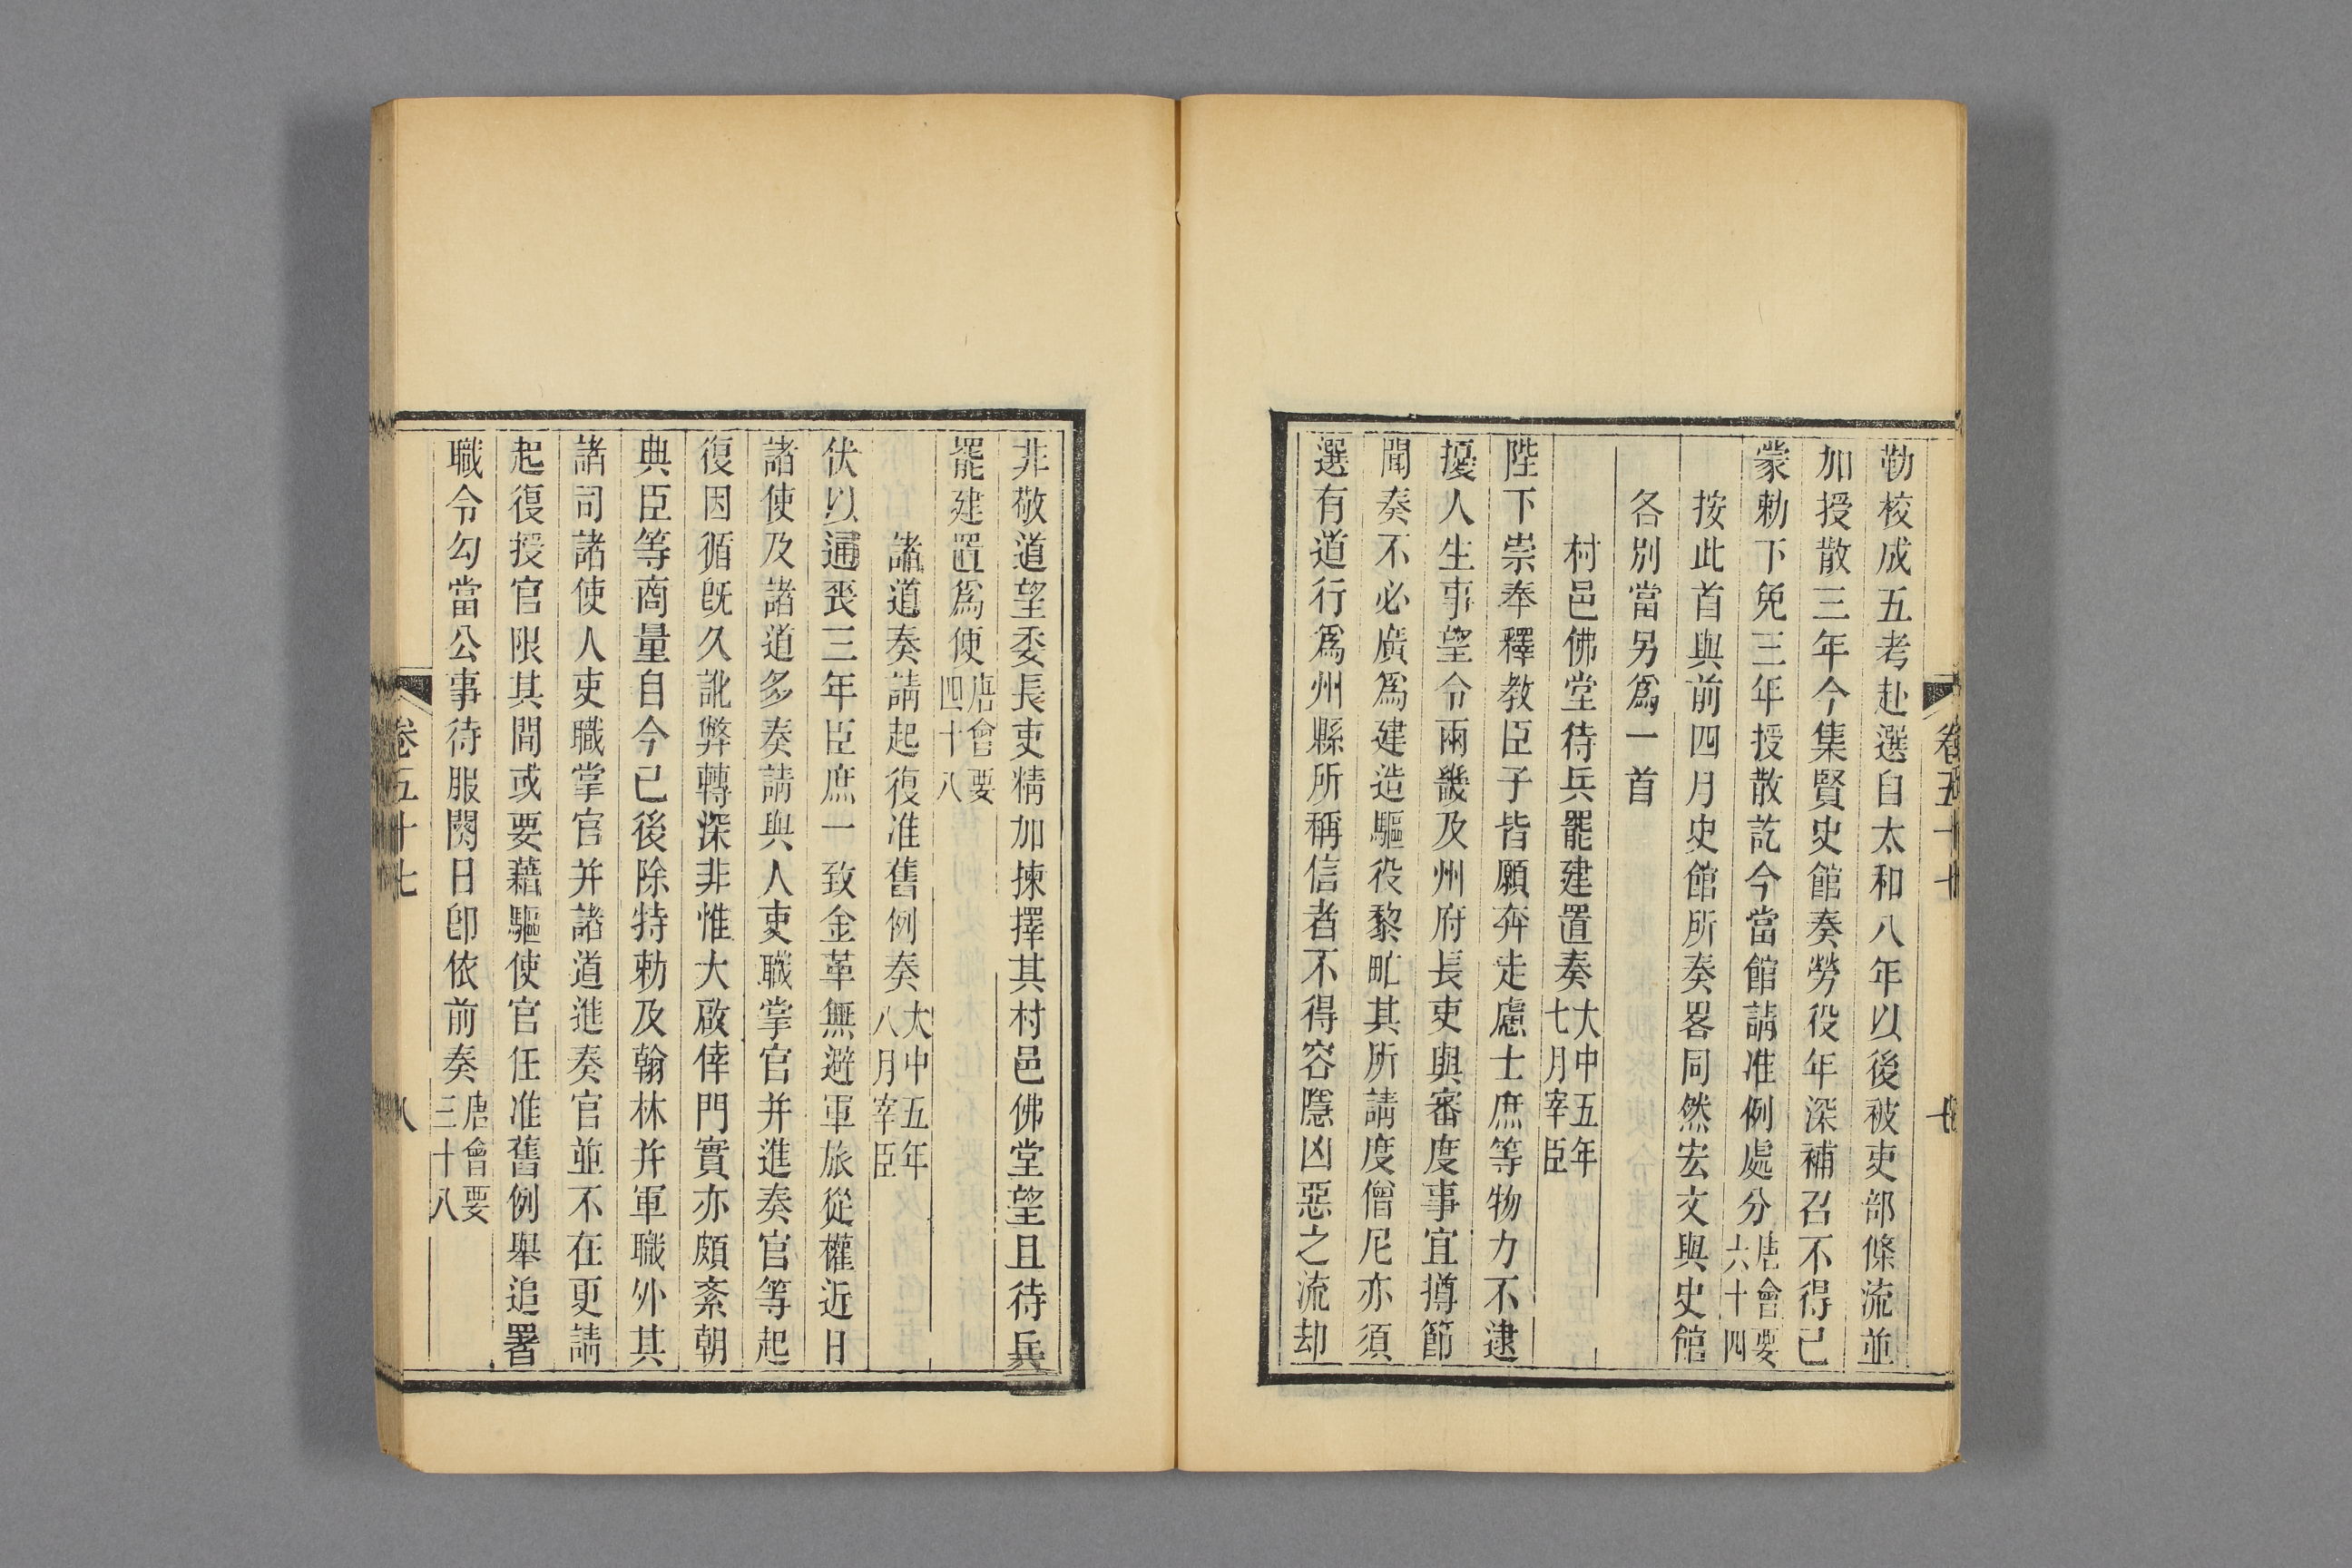 勒校成五考赴選自太和八年以後被吏部條流並
加授散三年今集賢史館奏勞役年深補召不得已
蒙勅下免三年授散訖今當館請准例處分唐會要六十四
按此首與前四月史館所奏畧同然宏文與史館
各別當另爲一首
村邑佛堂待兵罷建置奏大中五年七月宰臣
陛下崇奉釋教臣子皆願奔走慮士庶等物力不逮
擾人生事望令兩畿及州府長吏與審度事宜撙節
聞奏不必廣爲建造驅役黎甿其所請度僧尼亦須
選有道行爲州縣所稱信者不得容隱凶惡之流却
卷五十七
七
非敬道望委長吏精加揀擇其村邑佛堂望且待兵
罷建置爲便唐會要四十八
諸道奏請起復准舊例奏大中五年八月宰臣
伏以通喪三年臣庶一致金革無避軍旅從權近日
諸使及諸道多奏請與人吏職掌官并進奏官等起
復因循旣久訛弊轉深非惟大啟倖門實亦頗紊朝
典臣等商量自今已後除特勅及翰林并軍職外其
諸司諸使人吏職掌官并諸道進奏官並不在更請
起復授官限其間或要藉驅使官任准舊例舉追署
職令勾當公事待服闋日卽依前奏唐會要三十八
卷五十七
八